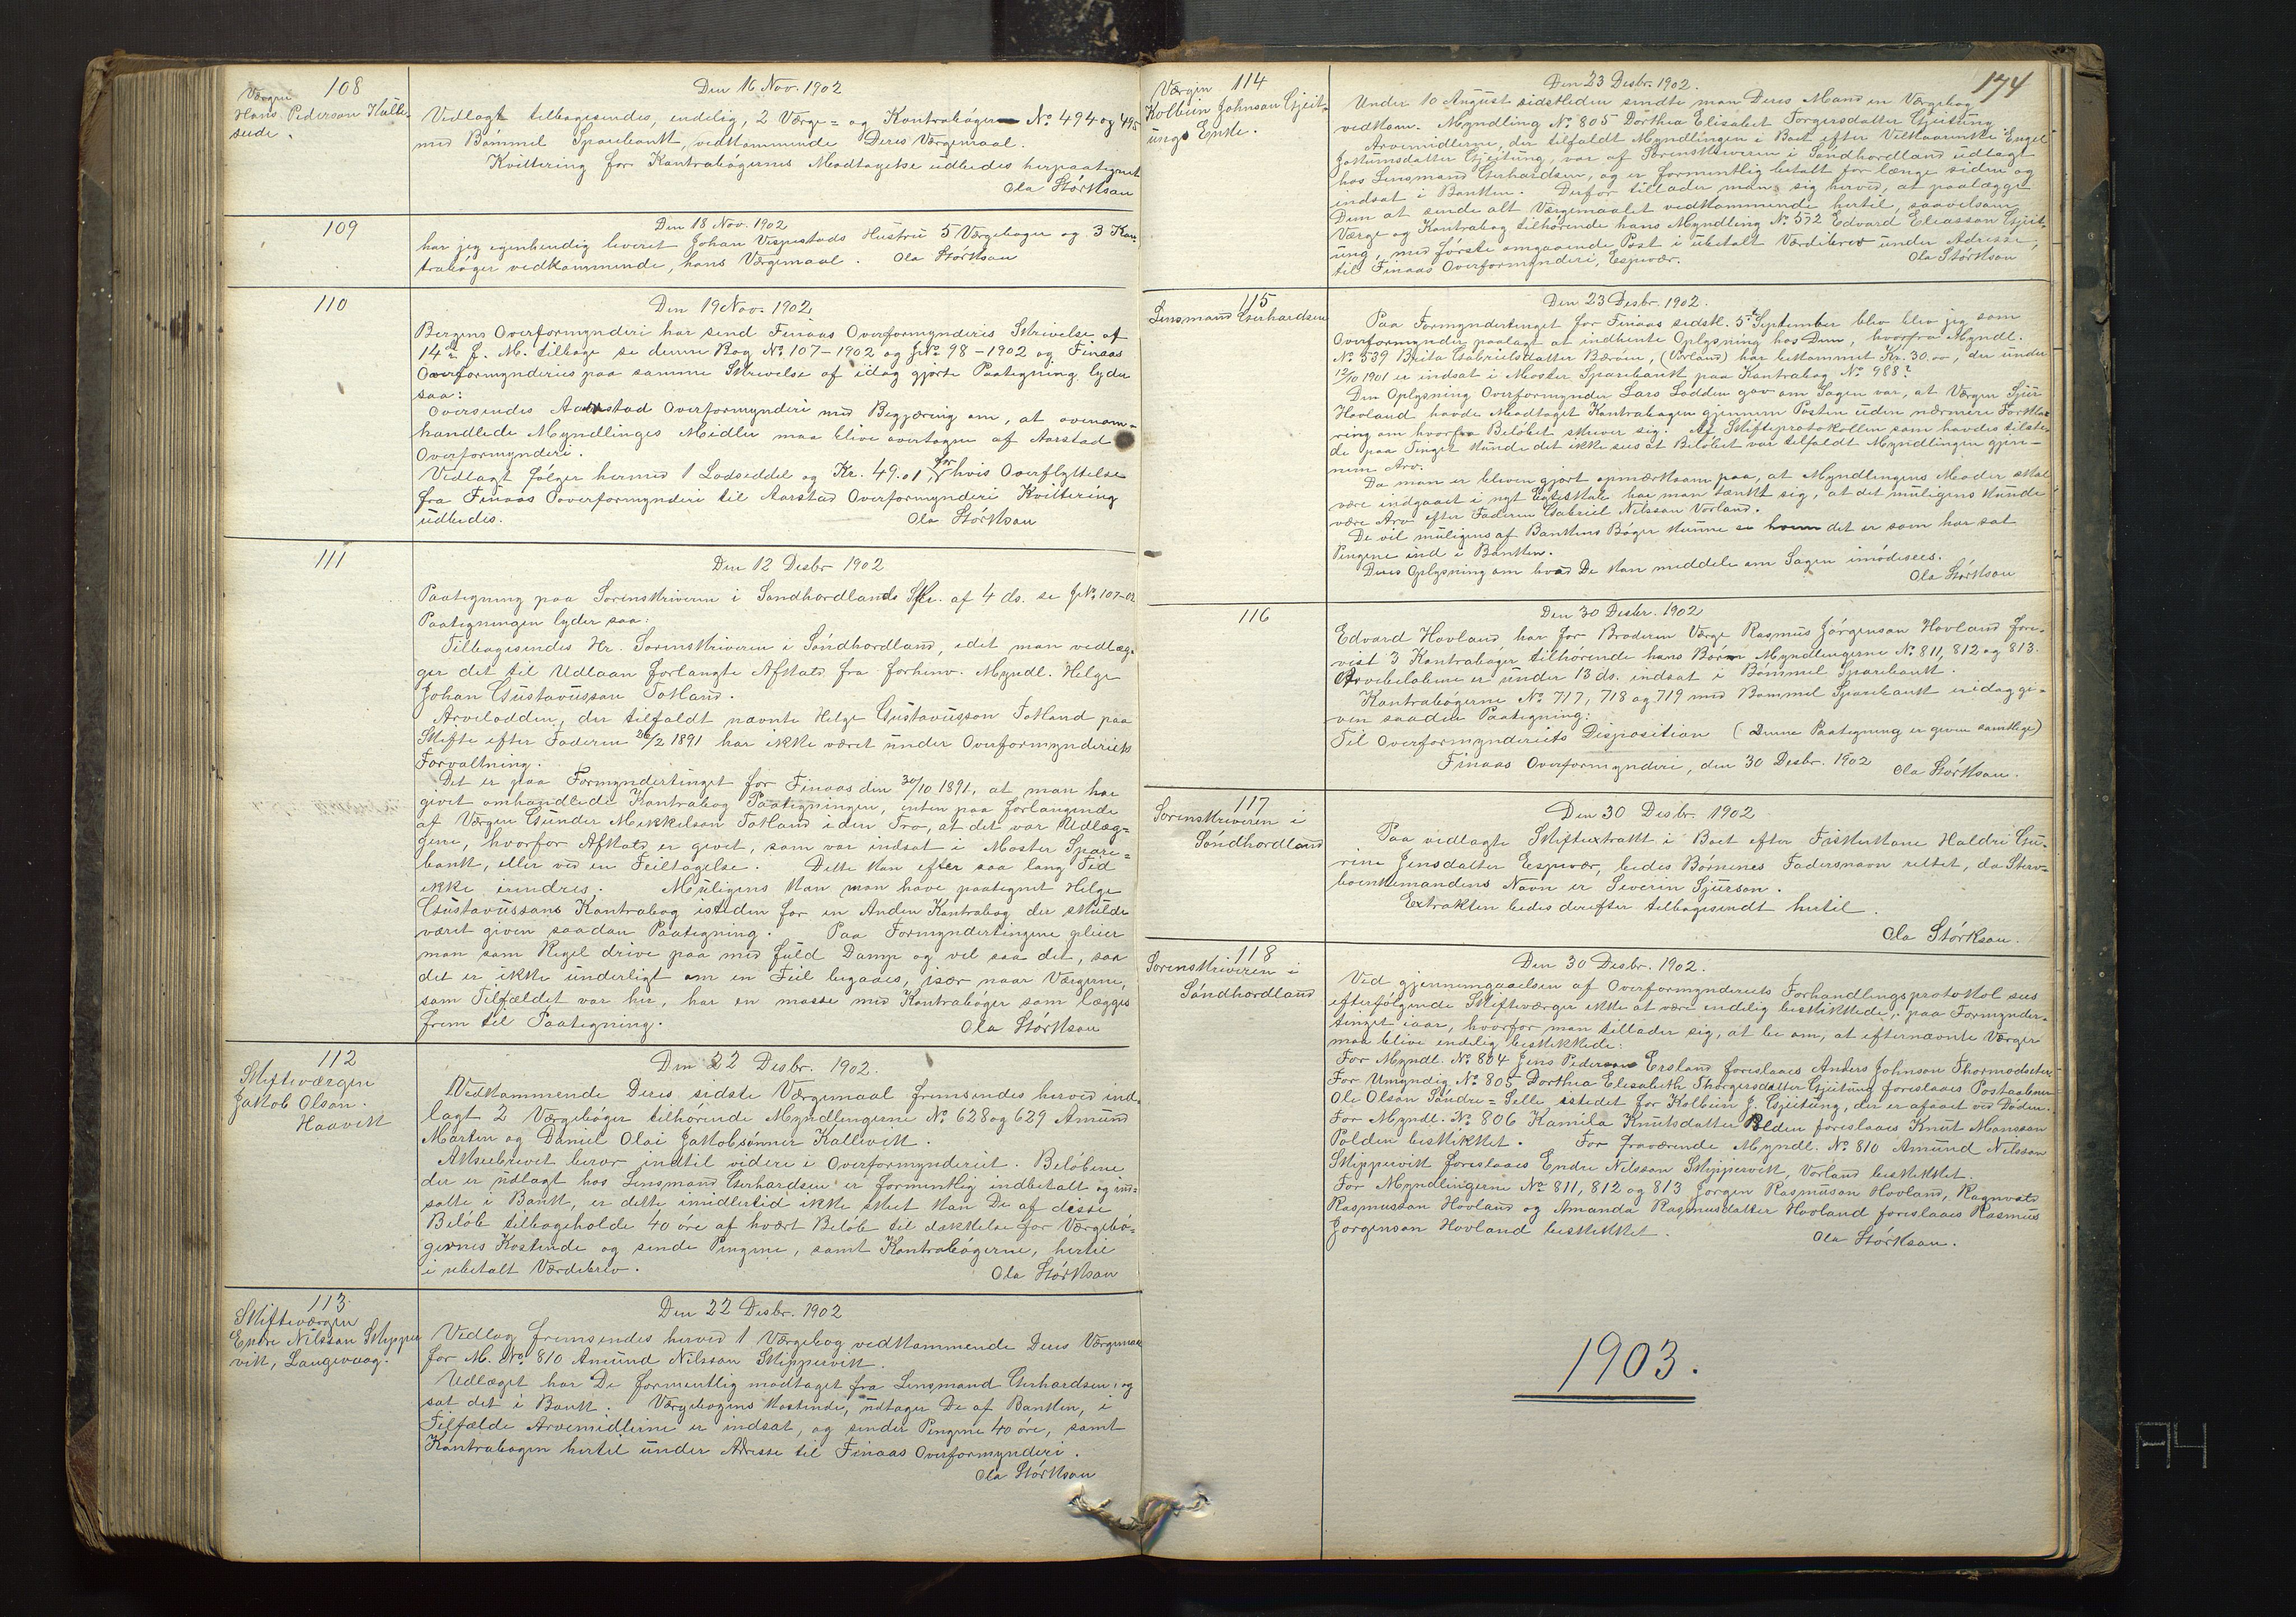 108
Værgen
Hans Pederson Kulle-
seide.
Den 16 Nov. 1902
Vedlagt tilbagesendes, endelig, 2 Værge= og Kontrabøger No 494 og 495
med Bømmel Sparebank, vedkommende Deres Værgemaal.
Kvittering for Kontrabøgernes Modtagelse udbedes herpaategnet
Ola Størkson
109
Den 18 Nov. 1902
har jeg egenhendig leveret Johan Vespestads Hustru 5 Værgebøger og 3 Kon-
trabøger vedkommende, hans Værgemaal. Ola Størkson
110
Den 19 Nov. 1902
Bergens Overformynderi har send Finaas Overformynderis Skrivelse af
14de f. M. tilbage se denne Bog No 107-1902 og JNo 98-1902 og Finaas
Overformynderies paa samme Skrivelse af idag gjorte Paategning lyder
saa:
Oversendes Aarstad Overformynderi med Begjæring om, at ovenom-
handlede Myndlinges Midler maa blive overtagen af Aarstad
Overformynderi.
Vedlagt følger hermed 1 Lodseddel og Kr. 49.01, for hvis Overflyttelse
fra Finaas Overformynderi til Aarstad Overformynderi Kvittering
udbedes. Ola Størkson
111
Den 12 Desbr 1902
Paategning paa Sorenskriveren i Søndhordlands Skr. af 4 ds. se JNo 107-02
Paategningen lyder saa:
Tilbagesendes Hr. Sorenskriveren i Søndhordland, idet man vedlæg-
ger det til Udlaan forlangte Afkald fra forhenv. Myndl. Helge
Johan Gustavusson Totland.
Arvelodden, der tilfaldt nævnte Helge Gustavusson Totland paa
Skifte efter Faderen 26/2 1891 har ikke været under Overformynderiets
Forvaltning.
Det er paa Formyndertinget for Finaas den 30/10 1891, at man har
givet omhandlede Kontrabog Paategningen, enten paa forlangende
af Værgen Gunder Mikkelson Totland i den Tro, at det var Udlæg-
gene, hvorfor Afkald er givet, som var indsat i Moster Spare=
bank, eller ved en Feiltagelse. Dette kan efter saa lang Tid
ikke erindres. Muligens kan man have paategnet Helge
Gustavussons Kontrabog isteden for en Anden Kontrabog der skulde
været given saadan Paategning. Paa Formyndertingene pleier
man som Regel drive paa med fuld Damp og vel saa det, saa
det er ikke underligt om en Feil begaaes, især naar Værgerne,
som Tilfældet var her, har en masse med Kontrabøger som lægges
frem til Paategning. Ola Størkson
112
Skifteværgen
Jakob Olson.
Haavik
Den 22 Desbr. 1902.
Vedkommende Deres sidste Værgemaal fremsendes herved ind-
lagt 2 Værgebøger tilhørende Myndlingerne No 628 og 629 Amund
Martin og Daniel Olai Jakobsønner Kallevik.
Afkaebrevet beror indtil videre i Overformynderiet. Beløbene
der er udlagt hos Lensmand Gerhardsen er formentlig indbetalt og ind=
satte i Bank, er dette imidlertid ikke skeet kan De af disse
Beløb tilbageholde 40 øre af hvært Beløb til dækkelse for Værgebø-
gernes Kostende og sende Pengene, samt Kontrabøgerne, hertil
i ubetalt Værdibrev. Ola Størkson
113.
Skifteværgen
Endre Nilsson Skipper
vik, Langevaag.
Den 22 Desbr. 1902
Vedlag fremsendes herved 1 Værgebog vedkommende Deres Værgemaal
for M. No 810 Amund Nilsson Skippervik.
Udlæget har De formentlig modtaget fra Lensmand Gerhardsen, og
sat det i Bank. Værgebogens Kostende, udtager De af Banken, i
Tilfælde Arvemidlerne er indsat, og sender Pengene 40 øre, samt
Kontrabogen hertil under Adresse til Finaas Overformynderi.
Ola Størkson
174
114
Værgen
Kolbein Johnson Gjeit-
ungs Enke.
Den 23 Desbr. 1902.
Under 10 August sidstleden sendte man Deres Mand en Værgebog
vedkom. Myndling No 805 Dorthea Elisabet Torgersdatter Gjeitung
Arvemidlerne, der tilfaldt Myndlingen i Boet efter Vilkaarsenke Engel
Jokumsdatter Gjeitung, var af Sorenskriveren i Søndhordland udlagt
hos Lensmand Gerhardsen, og er formentlig betalt for længe siden og
indsat i Banken. Derfor tillader man sig herved, at paalægge
Dem at sende alt Værgemaalet vedkommende hertil, saavelsom
Værge og Kontrabog tilhørende hans Myndling No 592 Edvard Eliasson Gjeit-
ung, med første omgaaende Post i ubetalt Værdibrev under Adresse,
til Finaas Overformynderi, Espevær. Ola Størkson
115
Lensmand Gerhardsen
Den 23 Desbr. 1902.
Paa Formyndertinget for Finaas sidstl. 5te September blev blev jeg som
Overformynder paalagt at indhente Oplysning hos Dem, hvorfra Myndl.
No 539 Brita Gabrielsdatter Bærøen, (Vorland) har bekommet Kr. 30.00, der under
12/10 1901 er indsat i Moster Sparebank paa Kontrabog No 988?
Den Oplysning Overformynder Lars Lodden gav om Sagen var, at Værgen Sjur
Hovland havde Modtaget Kontrabogen gjennem Posten uden nærmere Forkla-
ring om hvorfra Beløbet skriver sig. Af Skifteprotokollen som havdes tilste-
de paa Tinget kunde det ikke sees at Beløbet var tilfaldt Myndlingen gjen-
nem Arv.
Da man er bleven gjort opmærksom paa, at Myndlingens Moder skal
være indgaaet i nyt Egteskab har man tænkt sig, at det muligens kunde
være Arv efter Faderen Gabriel Nilsson Vorland.
De vil muligens af Bankens Bøger kunne se hvem det er som har sat
Pengene ind i Banken.
Deres Oplysning om hvad De kan meddele om Sagen imødesees.
Ola Størkson
116
Den 30 Desbr. 1902
Edvard Hovland har for Broderen Værge Rasmus Jørgenson Hovland fore-
vist 3 Kontrabøger tilhørende hans Børn Myndlingerne No 811, 812 og 813.
Arvebeløbene er under 13 ds. indsat i Bømmel Sparebank.
Kontrabøgerne No 717, 718 og 719 med Bømmel Sparebank er idag gi-
ven saaden Paategning:
Til Overformynderiets Disposition (Denne Paategning er given samtlige)
Finaas Overformynderi, den 30 Desbr. 1902 Ola Størkson.
117
Sorenskriveren i
Søndhordland
Den 30 Desbr 1902
Paa vedlagte Skifteextrakt i Boet efter Fiskerkone Haldri Gu-
rine Jensdatter Espevær, bedes Børnenes Fadersnavn rettet, da Sterv-
boenkemandens Navn er Severin Sjurson.
Extrakten bedes derefter tilbagesendt hertil.
Ola Størkson.
118
Sorenskriveren i
Søndhordland
Den 30 Desbr. 1902.
Ved gjennemgaaelsen af Overformynderiets Forhandlingsprotokol sees
efterfølgende Skifteværger ikke at være endelig beskikkede, paa Formynder-
tinget iaar, hvorfor man tillader sig, at be om, at efternævnte Værger
maa blive endelig beskikkede:
For Myndl. No 804 Jens Pederson Ersland foreslaaes Anders Johnson Thormodsæter
For Umyndig No 805 Dorthea Elisabeth Thorgersdatter Gjeitung foreslaaes Postaabner
Ole Olson Søndre=Selle istedet for Kolbein J. Gjeitung, der er afgaaet ved Døden.
For Myndl. No 806 Kamila Knutsdatter Polden foreslaaes Knut Monsson
Polden beskikket. For fraværende Myndl. No 810 Amund Nilsson
Skippervik foreslaaes Endre Nilsson Skippervik, Vorland beskikket.
For Myndlingerne No 811, 812 og 813 Jørgen Rasmuson Hovland, Ragnvald
Rasmusson Hovland og Amanda Rasmusdatter Hovland foreslaaes Rasmus
Jørgenson Hovland beskikket. Ola Størkson.
1903.
A4